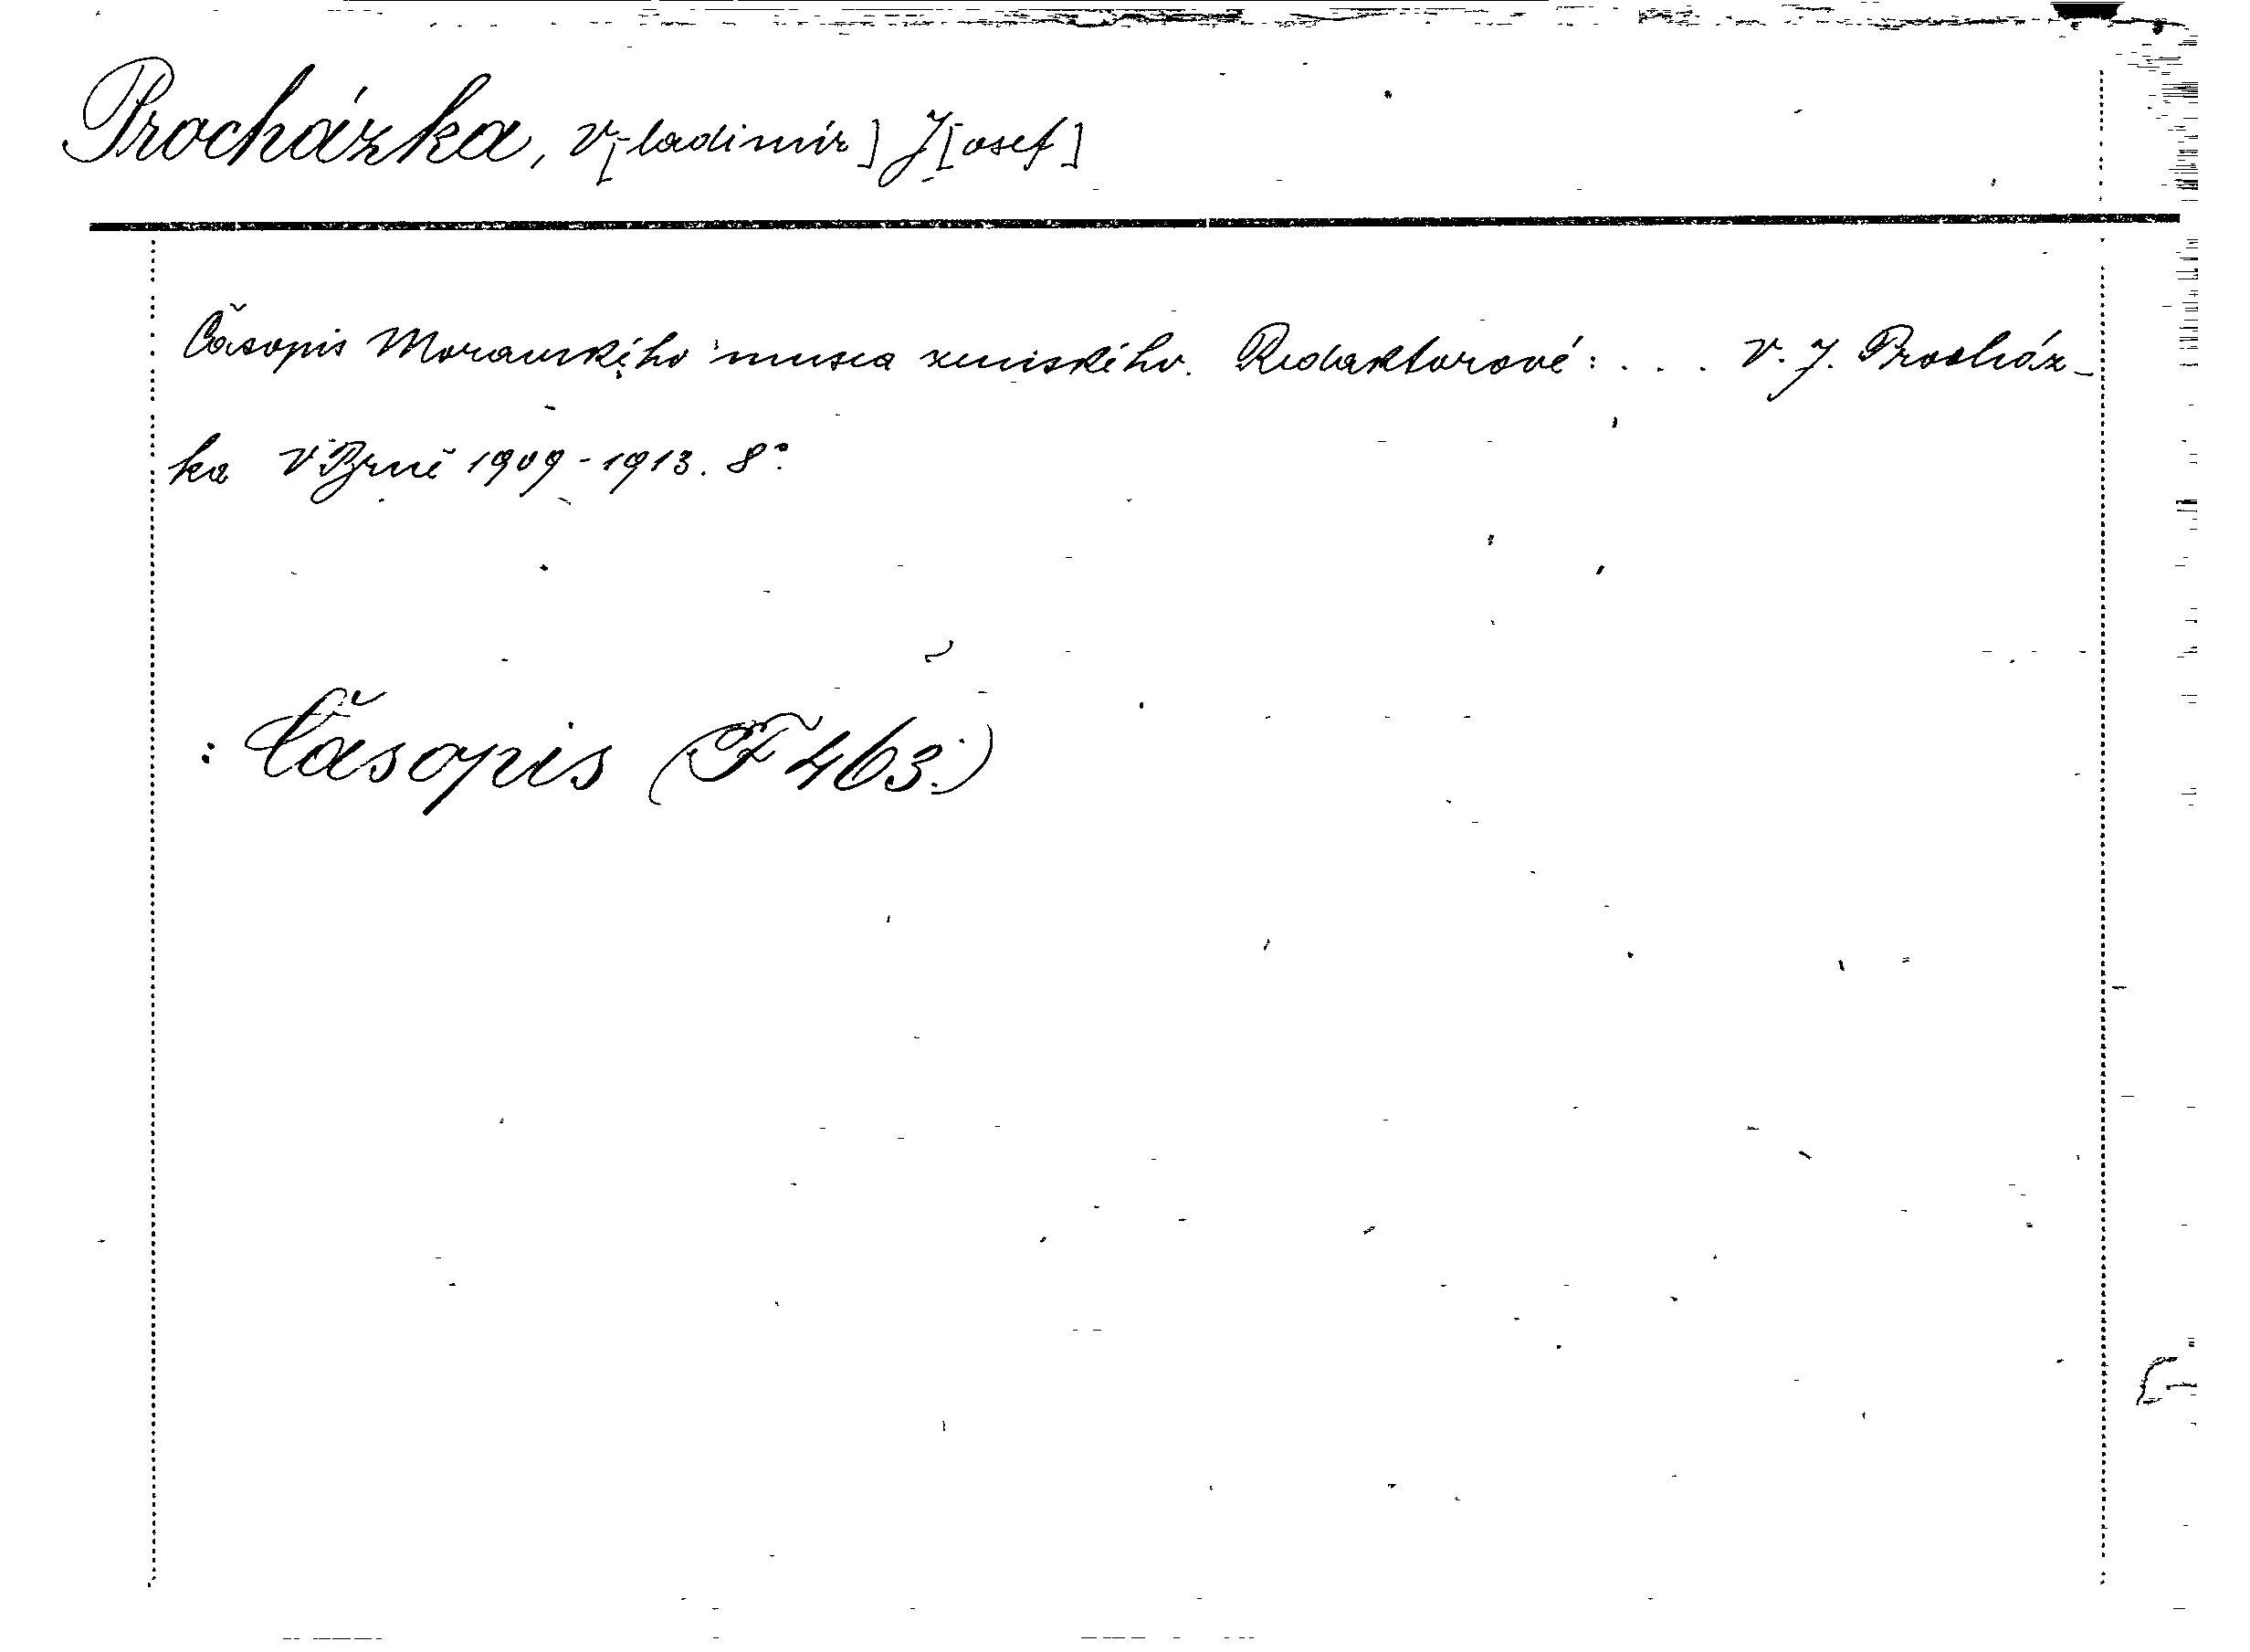 Procházka, V[ladimír] J[osef]
Časopis Moravského musea zemského. Redaktorové: . . . V. J. Procház-
ka V Brně 1909-1913. 8°.
: Časopis (F 463.)